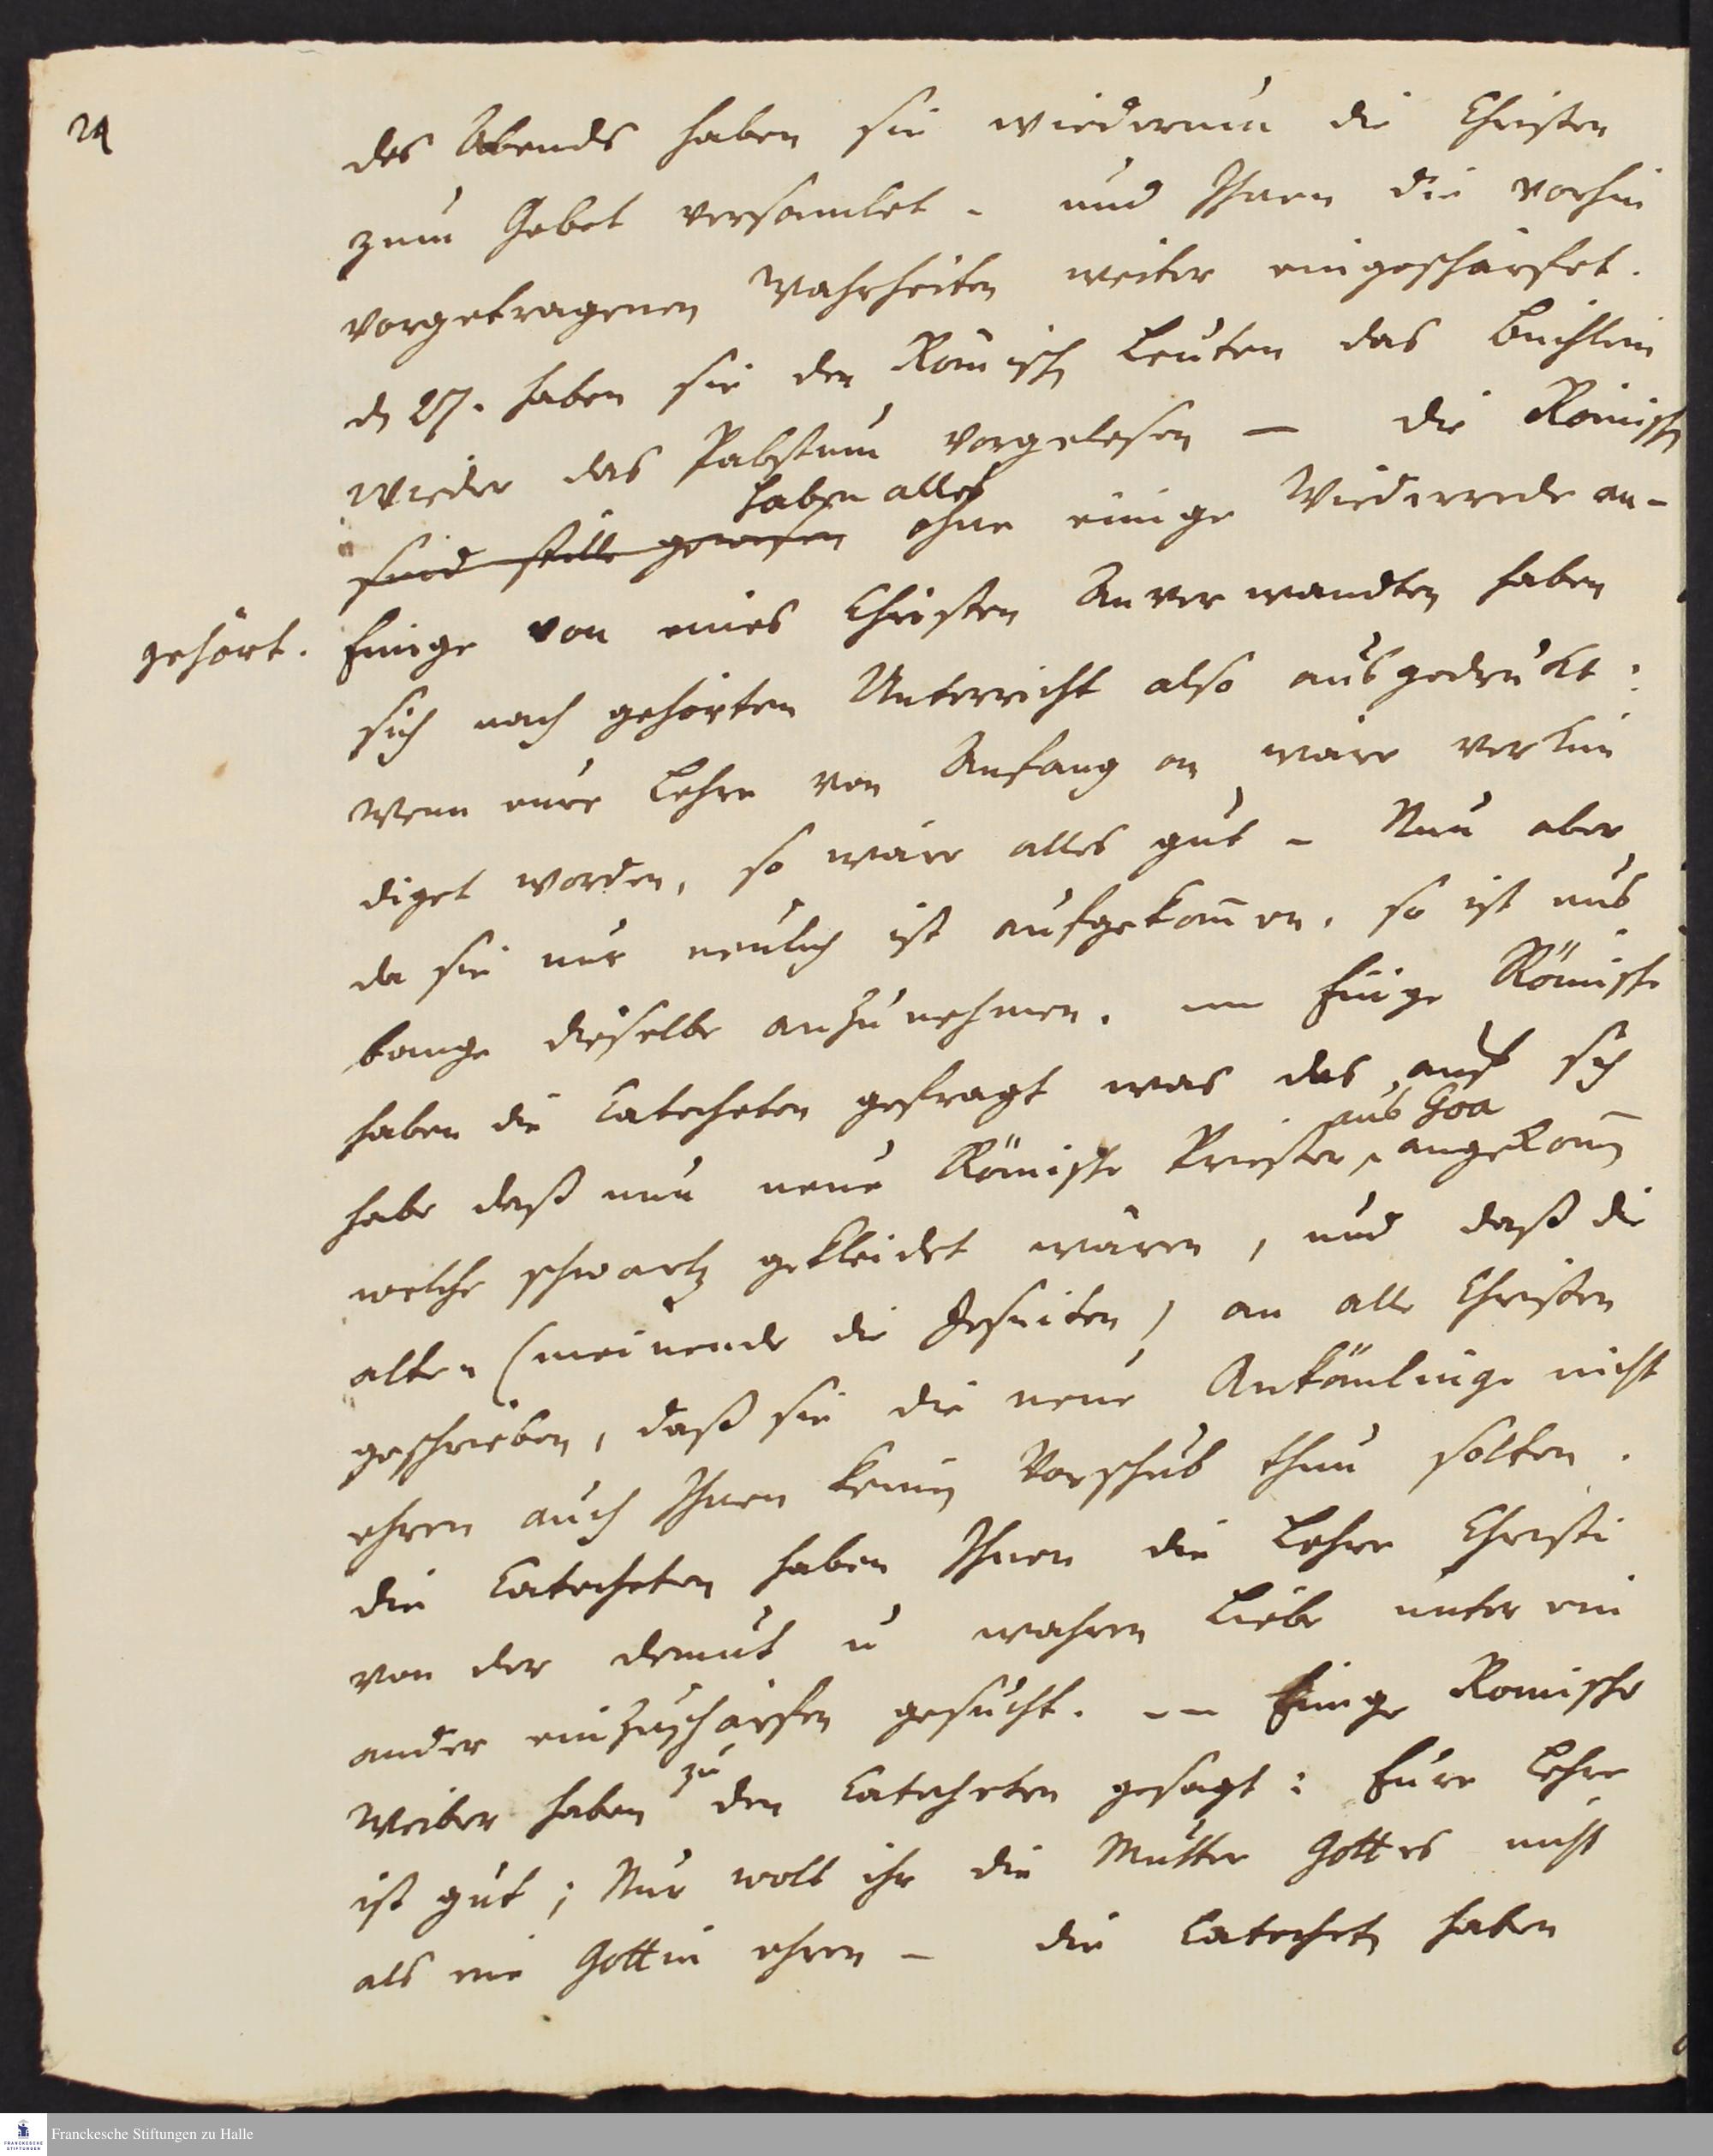 24
des Abends haben sie wiederum die Christen
zum Gebet versamlet - und Ihnen die vorhin
vorgetragenen Wahrheiten weiter eingeschärfet.
d 27. haben sie den Römisch Leuten das Büchlein
wieder das Pabstum vorgelesen — die Römisch
haben alles
sind stille gewesen ohne einige Wiederrede an-
gehört. Einige von eines Christen Anverwandten haben
sich nach gehörten Unterricht also ausgedrukt:
Wenn eure Lehre von Anfang an wäre verkün
diget worden, so wäre alles gut - Nun aber
da sie nur neulich ist aufgekom̄en, so ist uns
bange dieselbe anzunehmen. — Einige Römische
haben die Catecheten gefragt was das auf sich
aus Goa
habe daß nun neue Römische Priester angekom̄
welche schwartz gekleidet wären, und daß die
alten (meinende die Jesuiten) an alle Christen
geschrieben, daß sie die neue Ankömlinge nicht
ehren auch Ihnen keinen Vorschub thun solten.
die Catecheten haben Ihnen die Lehre Christi
von der demut u wahren Liebe unter ein
ander einzuschärfen gesucht. — Einige Römische
zu
Weiber haben den Catecheten gesagt: Eure Lehre
ist gut; Nur wolt ihr die Mutter Gottes nicht
als eine Gottin ehren — die Catechet haben
Franckesche Stiftungen zu Halle